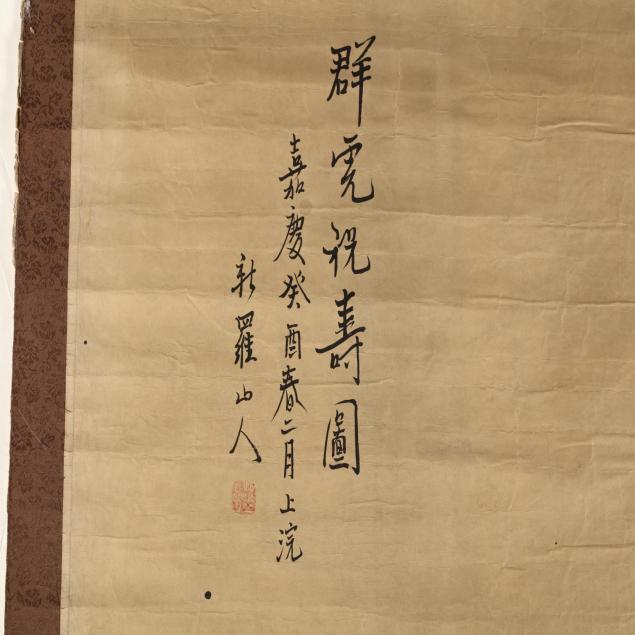 群虎祝壽圖
嘉慶癸酉春二月上浣
新羅山人